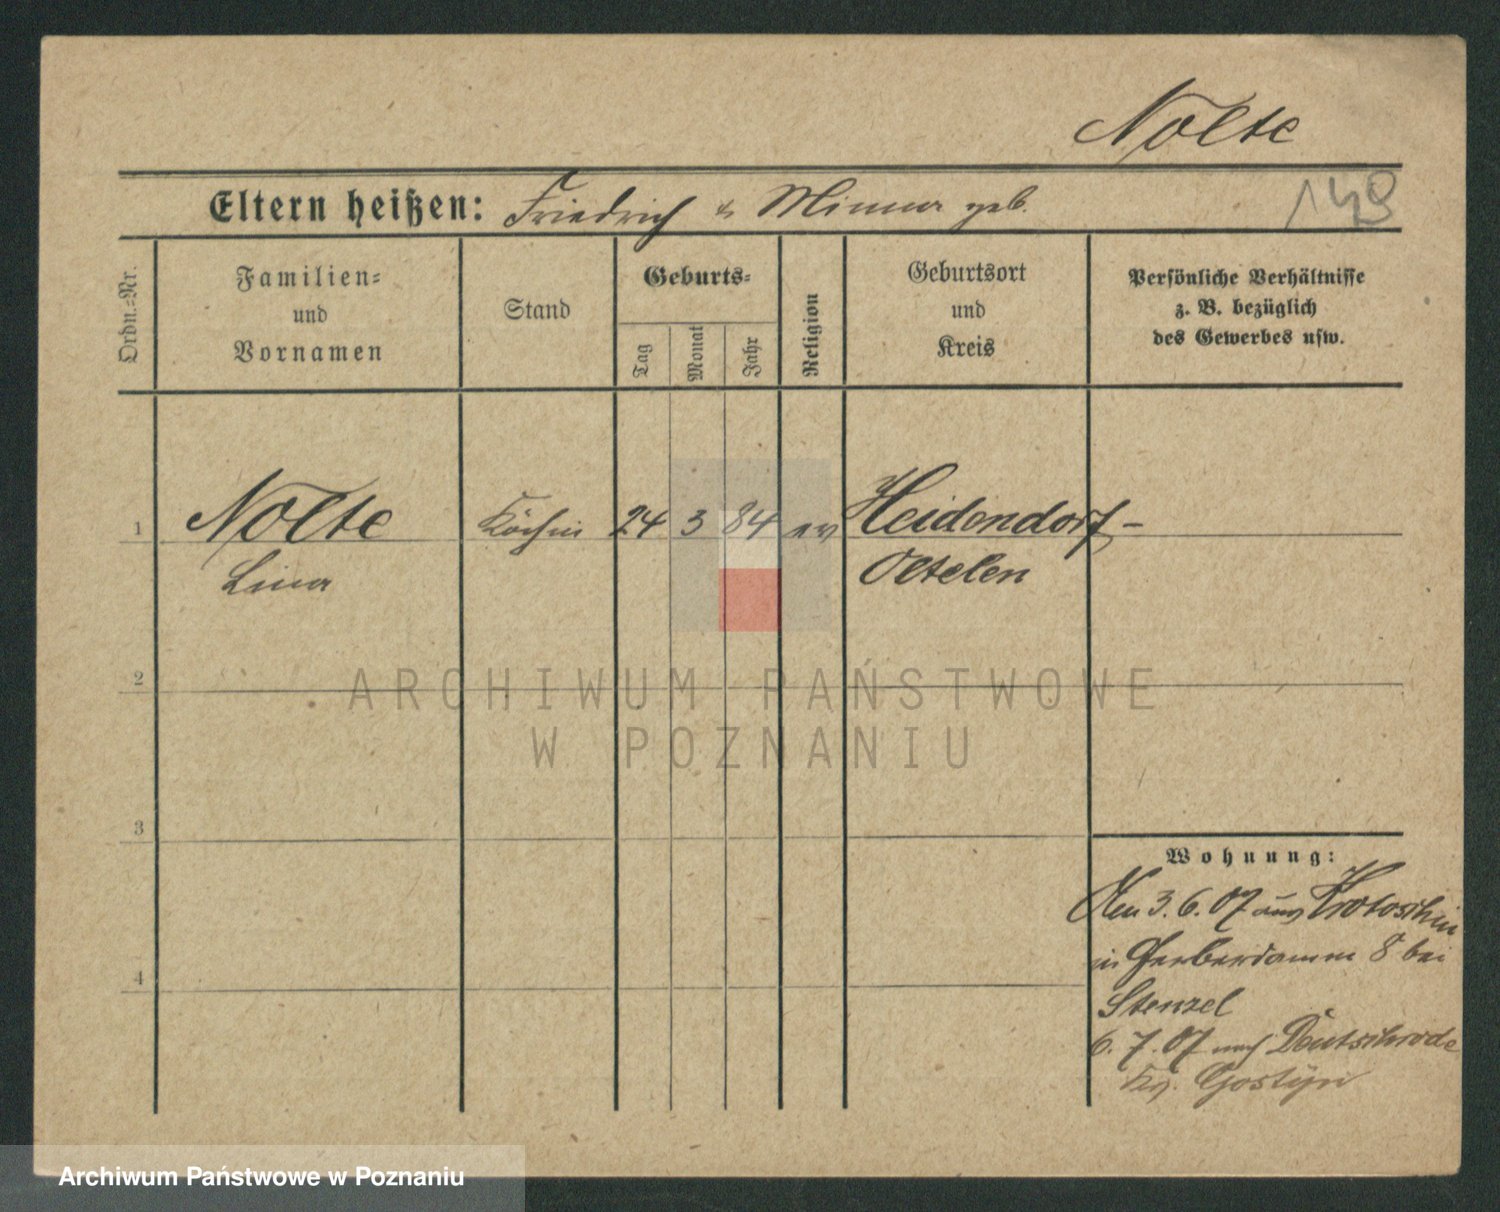 Nolte
149
Eltern heißen: Friedrich & Minna geb.
Ordn.-Nr.
Familien-
und
Vornamen
Stand
Geburts-
Tag
Monat
Jahr
Religion
Geburtsort
und
Kreis
Persönliche Verhältnisse
z. B. bezüglich
des Gewerbes usw.
1 Nolte Köchin 24 3 84 ev Heidendorf-
Lina Oltelen
2
ARCHIWUM PAŃSTWOWE
W POZNANIU
3
Wohnung:
Den 3.6.07 aus Krotoschin
in Gerberdamm 8 bei
4
Stenzel
6.7.07 nach Deutschrode
Krs. Gostyn
Archiwum Państwowe w Poznaniu